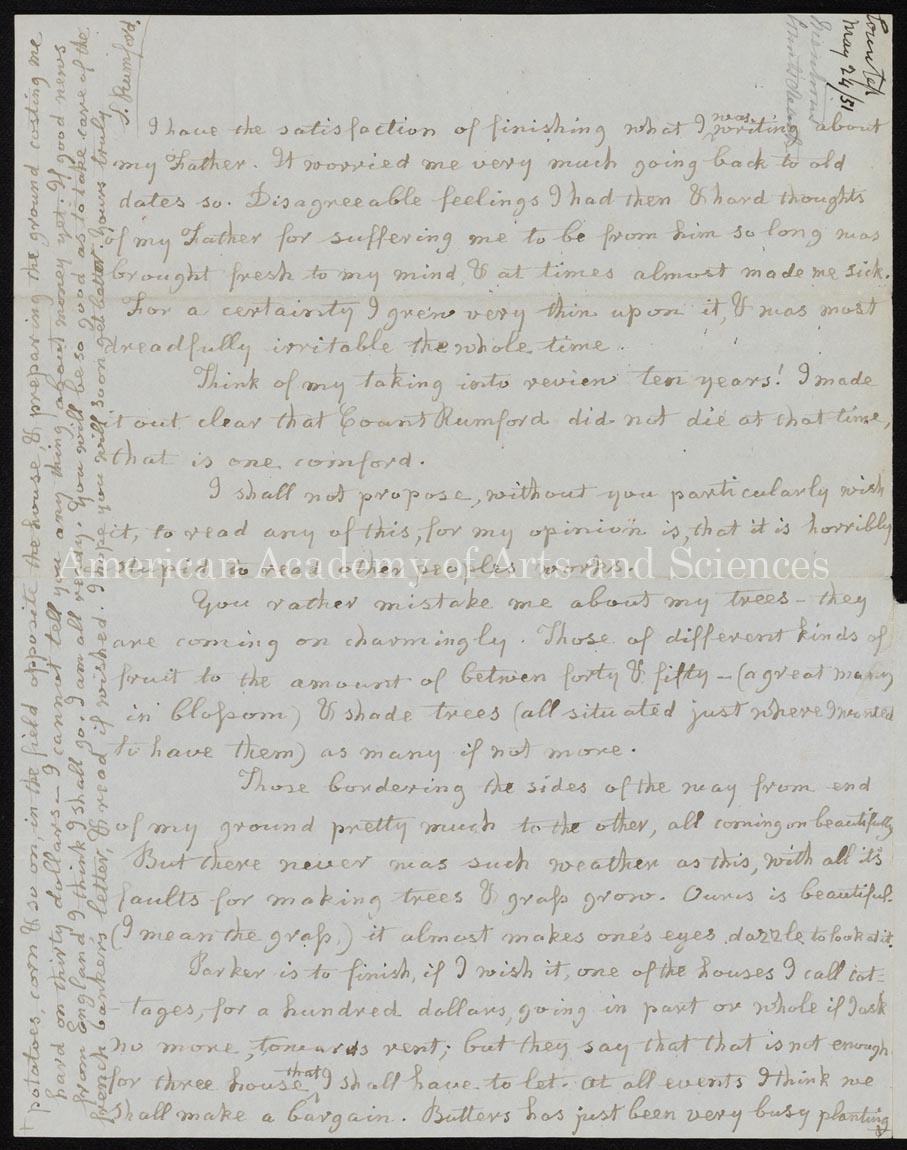 Countess
May 24/51
I have the satisfaction of finishing what I was writing about
my Father. It worried me very much going back to old
dates so. Disagreeable feelings I had then & hard thoughts
of my Father for suffering me to be from him so long was
brought fresh to my mind & at times almost made me sick.
For a certainty I grew very thin upon it, & was most
dreadfully irritable the whole time.
Think of my taking into review ten years! I made
it out clear that Count Rumford did not die at that time,
that is one comford.
I shall not propose, without you particularly wish
it, to read any of this, for my opinion is, that it is horribly
stupid to read other peoples works.
You rather mistake me about my trees - they
are coming on charmingly. Those of different kinds of
fruit to the amount of betwen forty & fifty - (a great many
in blossom) & shade trees (all situated just where I wanted
to have them) as many if not more.
Those bordering the sides of the way from end
of my ground pretty much to the other, all coming on beautifully
But there never was such weather as this, with all its
faults for making trees & grass grow. Ours is beautiful.
(I mean the grass,) it almost makes one's eyes dazzle to look at it.
Parker is to finish, if I wish it, one of the houses I call cot-
-tages, for a hundred dollars, going in part or whole if I ask
no more, towards rent; but they say that that is not enough
for three house that I shall have to let. At all events I think we
shall make a bargain. Butters has just been very busy planting
+ potatoes, corn & so on, in the field opposite the house, & preparing the ground costing me
hard on thirty dollars - I cannot tell you any thing about money yet. If good news
from England I think I shall go; I am all ready. You will be so good as to take care of the
french bankers letter, & read if wished. I hope you will soon get better. Yours truly
S. Rumford.
American Academy of Arts and Sciences